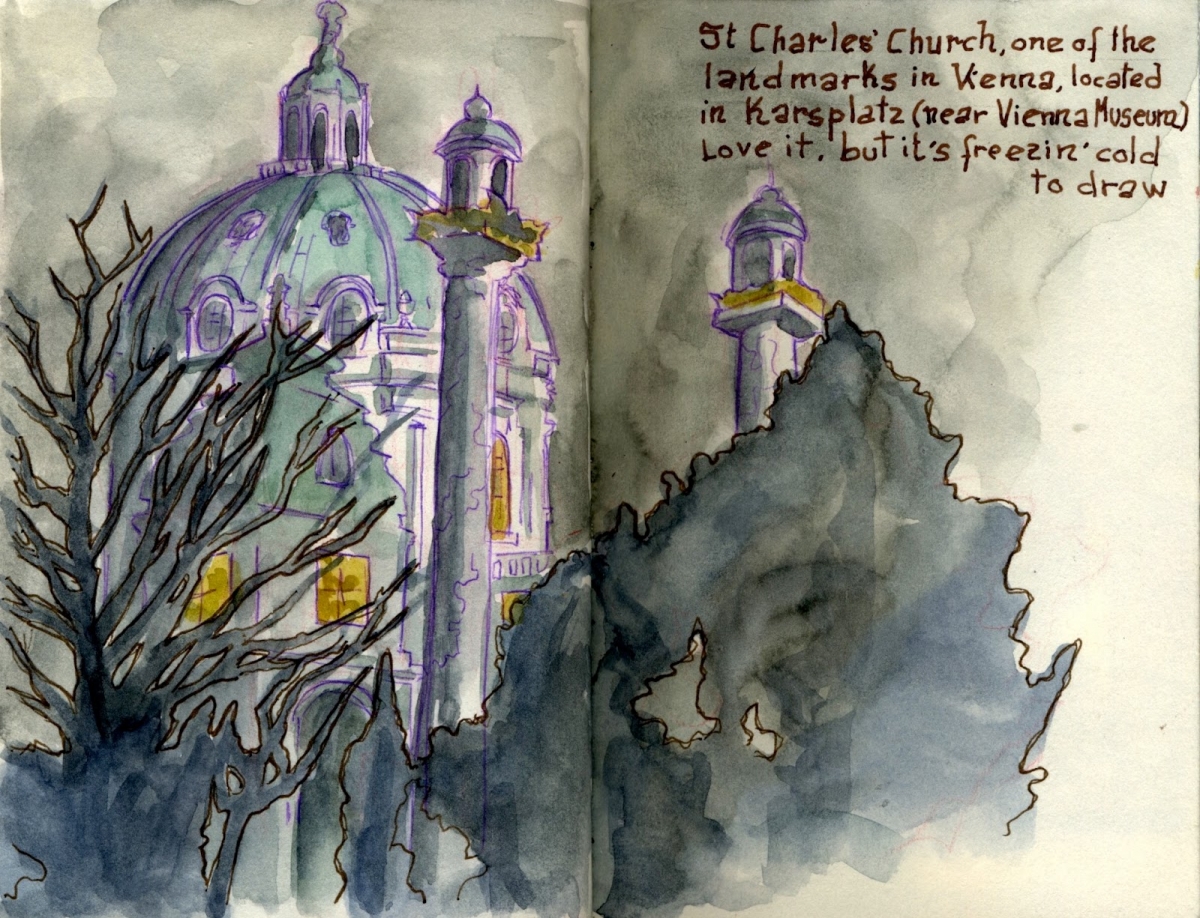 St Charles' Church, one of the
landmarks in Vienna, located
in Karsplatz (near Vienna Museum)
Love it, but it's freezin' cold
to draw